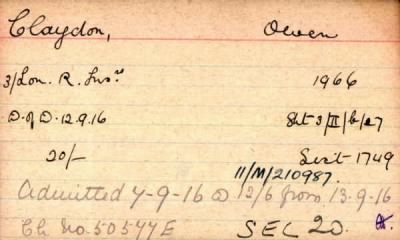 Claydon, Owen
3/Lon. R. Fus.rs 1966
D. of D. 12.9.16 Sht 3/II/6/27
20/- List 1749
11/M/210987.
Admitted 7-9-16 @ 12/6 from 13-9-16
Ch No. 50577E SEC 20.